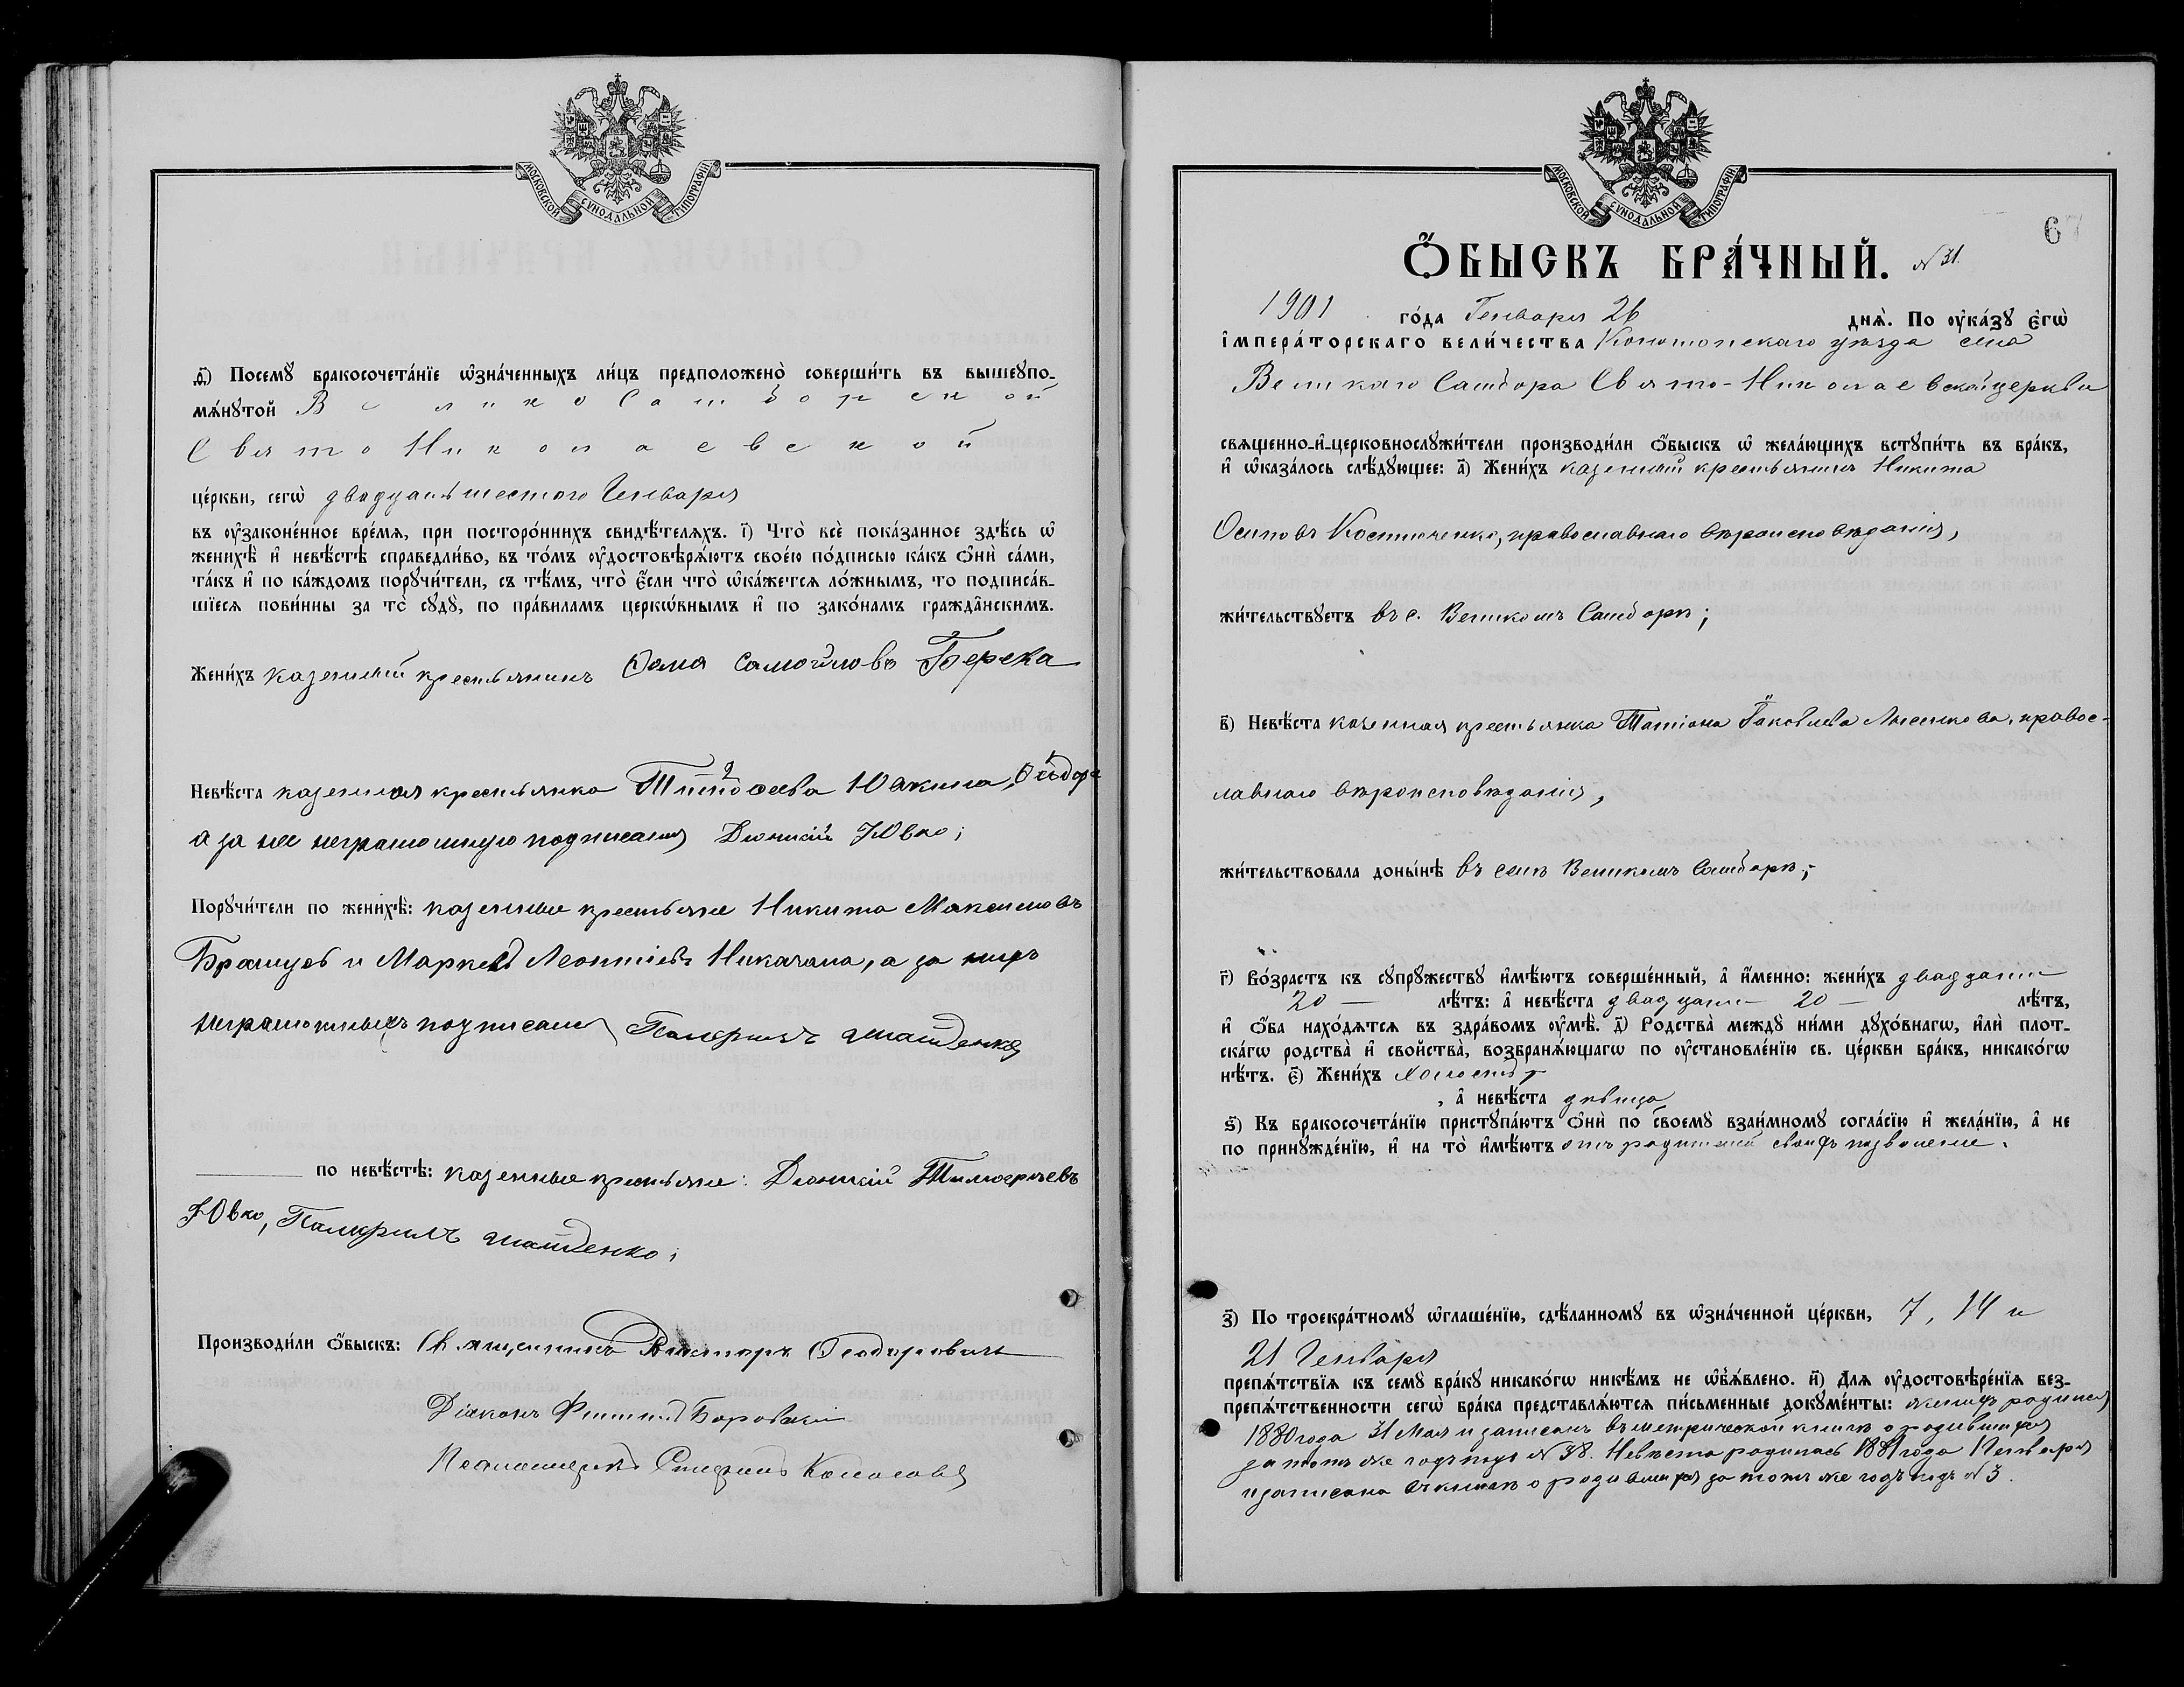 МОСКОВСКОЙ СѴНОДАЛЬНОЙ ТИПОГРАФІИ
д҃) Посемꙋ̀ бракосочета́нїе ѡ҆зна́ченныхъ ли́цъ предположено̀ соверши́ть въ вышеꙋпо-
мѧ́нꙋтой Велико Самборской
Свято Николаевской
це́ркви, сегѡ̀ двадцать шестого Генваря
въ ᲂу҆законе́нное вре́мѧ, при посторо́ннихъ свидѣ́телѧхъ. і҃) Что̀ всѐ пока́занное здѣ́сь ѡ҆
женихѣ̀ и҆ невѣ́стѣ справедли́во, въ то́мъ ᲂу҆достовѣрѧ́ютъ свое́ю по́дписью ка́къ ѻ҆нѝ са́ми,
та́къ и҆ по ка́ждомъ порꙋчи́тели, съ тѣ́мъ, что̀ є҆́сли что̀ ѡ҆ка́жетсѧ ло́жнымъ, то подписа́в-
шїесѧ пови́нны за то̀ сꙋдꙋ̀, по пра́виламъ церкѡ́внымъ и҆ по зако́намъ гражда̂нскимъ.
Жени́хъ казенный крестьянинъ Ѳома Самойловъ Берека
Невѣ́ста казенная крестьянка
а за нее неграмотную подписался Діонисій Ювко;
Порꙋчи́тели по женихѣ̀: казенные крестьяне Никита Максимовъ
и Леонтіевъ а за нихъ
неграмотныхъ подписался
по невѣ́стѣ: казенные крестьяне: Діонисій
Ювко,
Производи́ли ѻ҆́быскъ: Священникъ Викторъ Ѳеодоровичъ
Діаконъ Филиппъ Боровскій
Псаломщикъ
МОСКОВСКОЙ СѴНОДАЛЬНОЙ ТИПОГРАФІИ
67
Ѻ҆́БЫСКЪ БРА́ЧНЫЙ. № 31.
1901 го́да Генваря 26 днѧ̀. По ᲂу҆ка́зꙋ є҆гѡ̀
і҆мпера́торскаго вели́чества Конотопскаго уѣзда села
Великаго Самбора Свято-Николаевской церкви
свѧщенно-и҆-церковнослꙋжи́тели производи́ли ѻ҆́быскъ ѡ҆ жела́ющихъ встꙋпи́ть въ бра́къ,
и҆ ѡ҆каза́лось слѣ́дꙋющее: а҃) Жени́хъ казенный крестьянинъ Никита
Осиповъ Костюченко, православнаго вѣроисповѣданія,
жи́тельствꙋетъ въ с. Великомъ Самборѣ;
в҃) Невѣ́ста казенная крестьянка Татіана Іаковлева Лысенкова, правос-
лавнаго вѣроисповѣданія,
жи́тельствовала доны́нѣ въ селѣ Великомъ Самборѣ;
г҃) Во́зрастъ къ сꙋпрꙋ́жествꙋ и҆мѣ́ютъ соверше́нный, а҆ и҆́менно: жени́хъ двадцати
20 — лѣ́тъ: а҆ невѣ́ста двадцати — 20 — лѣ́тъ,
и҆ ѻ҆́ба нахо́дѧтсѧ въ здра́вомъ ᲂу҆мѣ̀. д҃) Родства̀ междꙋ ни́ми дꙋхо́внагѡ, и҆лѝ плот-
ска́гѡ родства̀ и҆ свойства̀, возбранѧ́ющагѡ по ᲂу҆становле́нїю св. це́ркви бра́къ, никако́гѡ
нѣ́тъ. є҃) Жени́хъ холостъ,
, а҆ невѣ́ста дѣвица
ѕ҃) Къ бракосочета́нїю пристꙋпа́ютъ ѻ҆нѝ по своемꙋ̀ взаи́мномꙋ согла́сїю и҆ жела́нїю, а҆ не
по принꙋжде́нїю, и҆ на то̀ и҆мѣ́ютъ отъ родителей своихъ позволеніе.
з҃) По троекра́тномꙋ ѡ҆глаше́нїю, сдѣ́ланномꙋ въ ѡ҆зна́ченной це́ркви, 7, 14 и
21 Генваря
препѧ́тствїѧ къ семꙋ̀ бра́кꙋ никако́гѡ никѣ́мъ не ѡ҆б̾ѧ́влено. и҃) Длѧ ᲂу҆достовѣре́нїѧ без-
препѧ́тственности сегѡ̀ бра́ка представлѧ́ютсѧ пи́сьменные докꙋме́нты: женихъ родился
1880 года 31 Мая и записанъ въ метрической книгѣ о родившихся
за тотъ же годъ подъ № 38. Невѣста родилась 1881 года Генваря
и записана въ книгѣ о родившихся за тотъ же годъ подъ № 3.